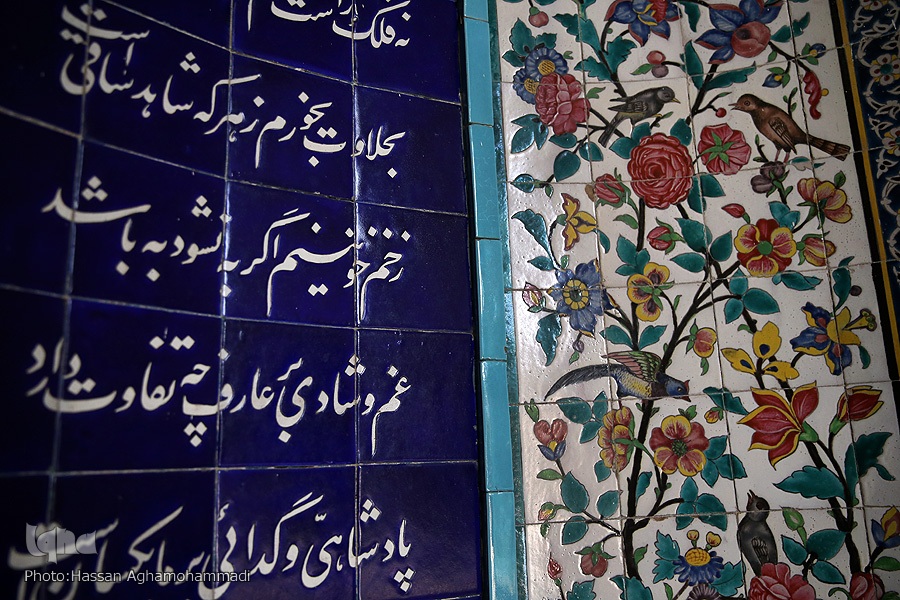 نه فلک راست
بحلاوت بخورم زهر که شاهد ساقی است
زخم خونینم اگر به نشود به باشد
غم و شادی بر عارف چه تفاوت دارد
پادشاهی و گدائی بر ما یکسانست
iqna
Photo:Hassan Aghamohammadi